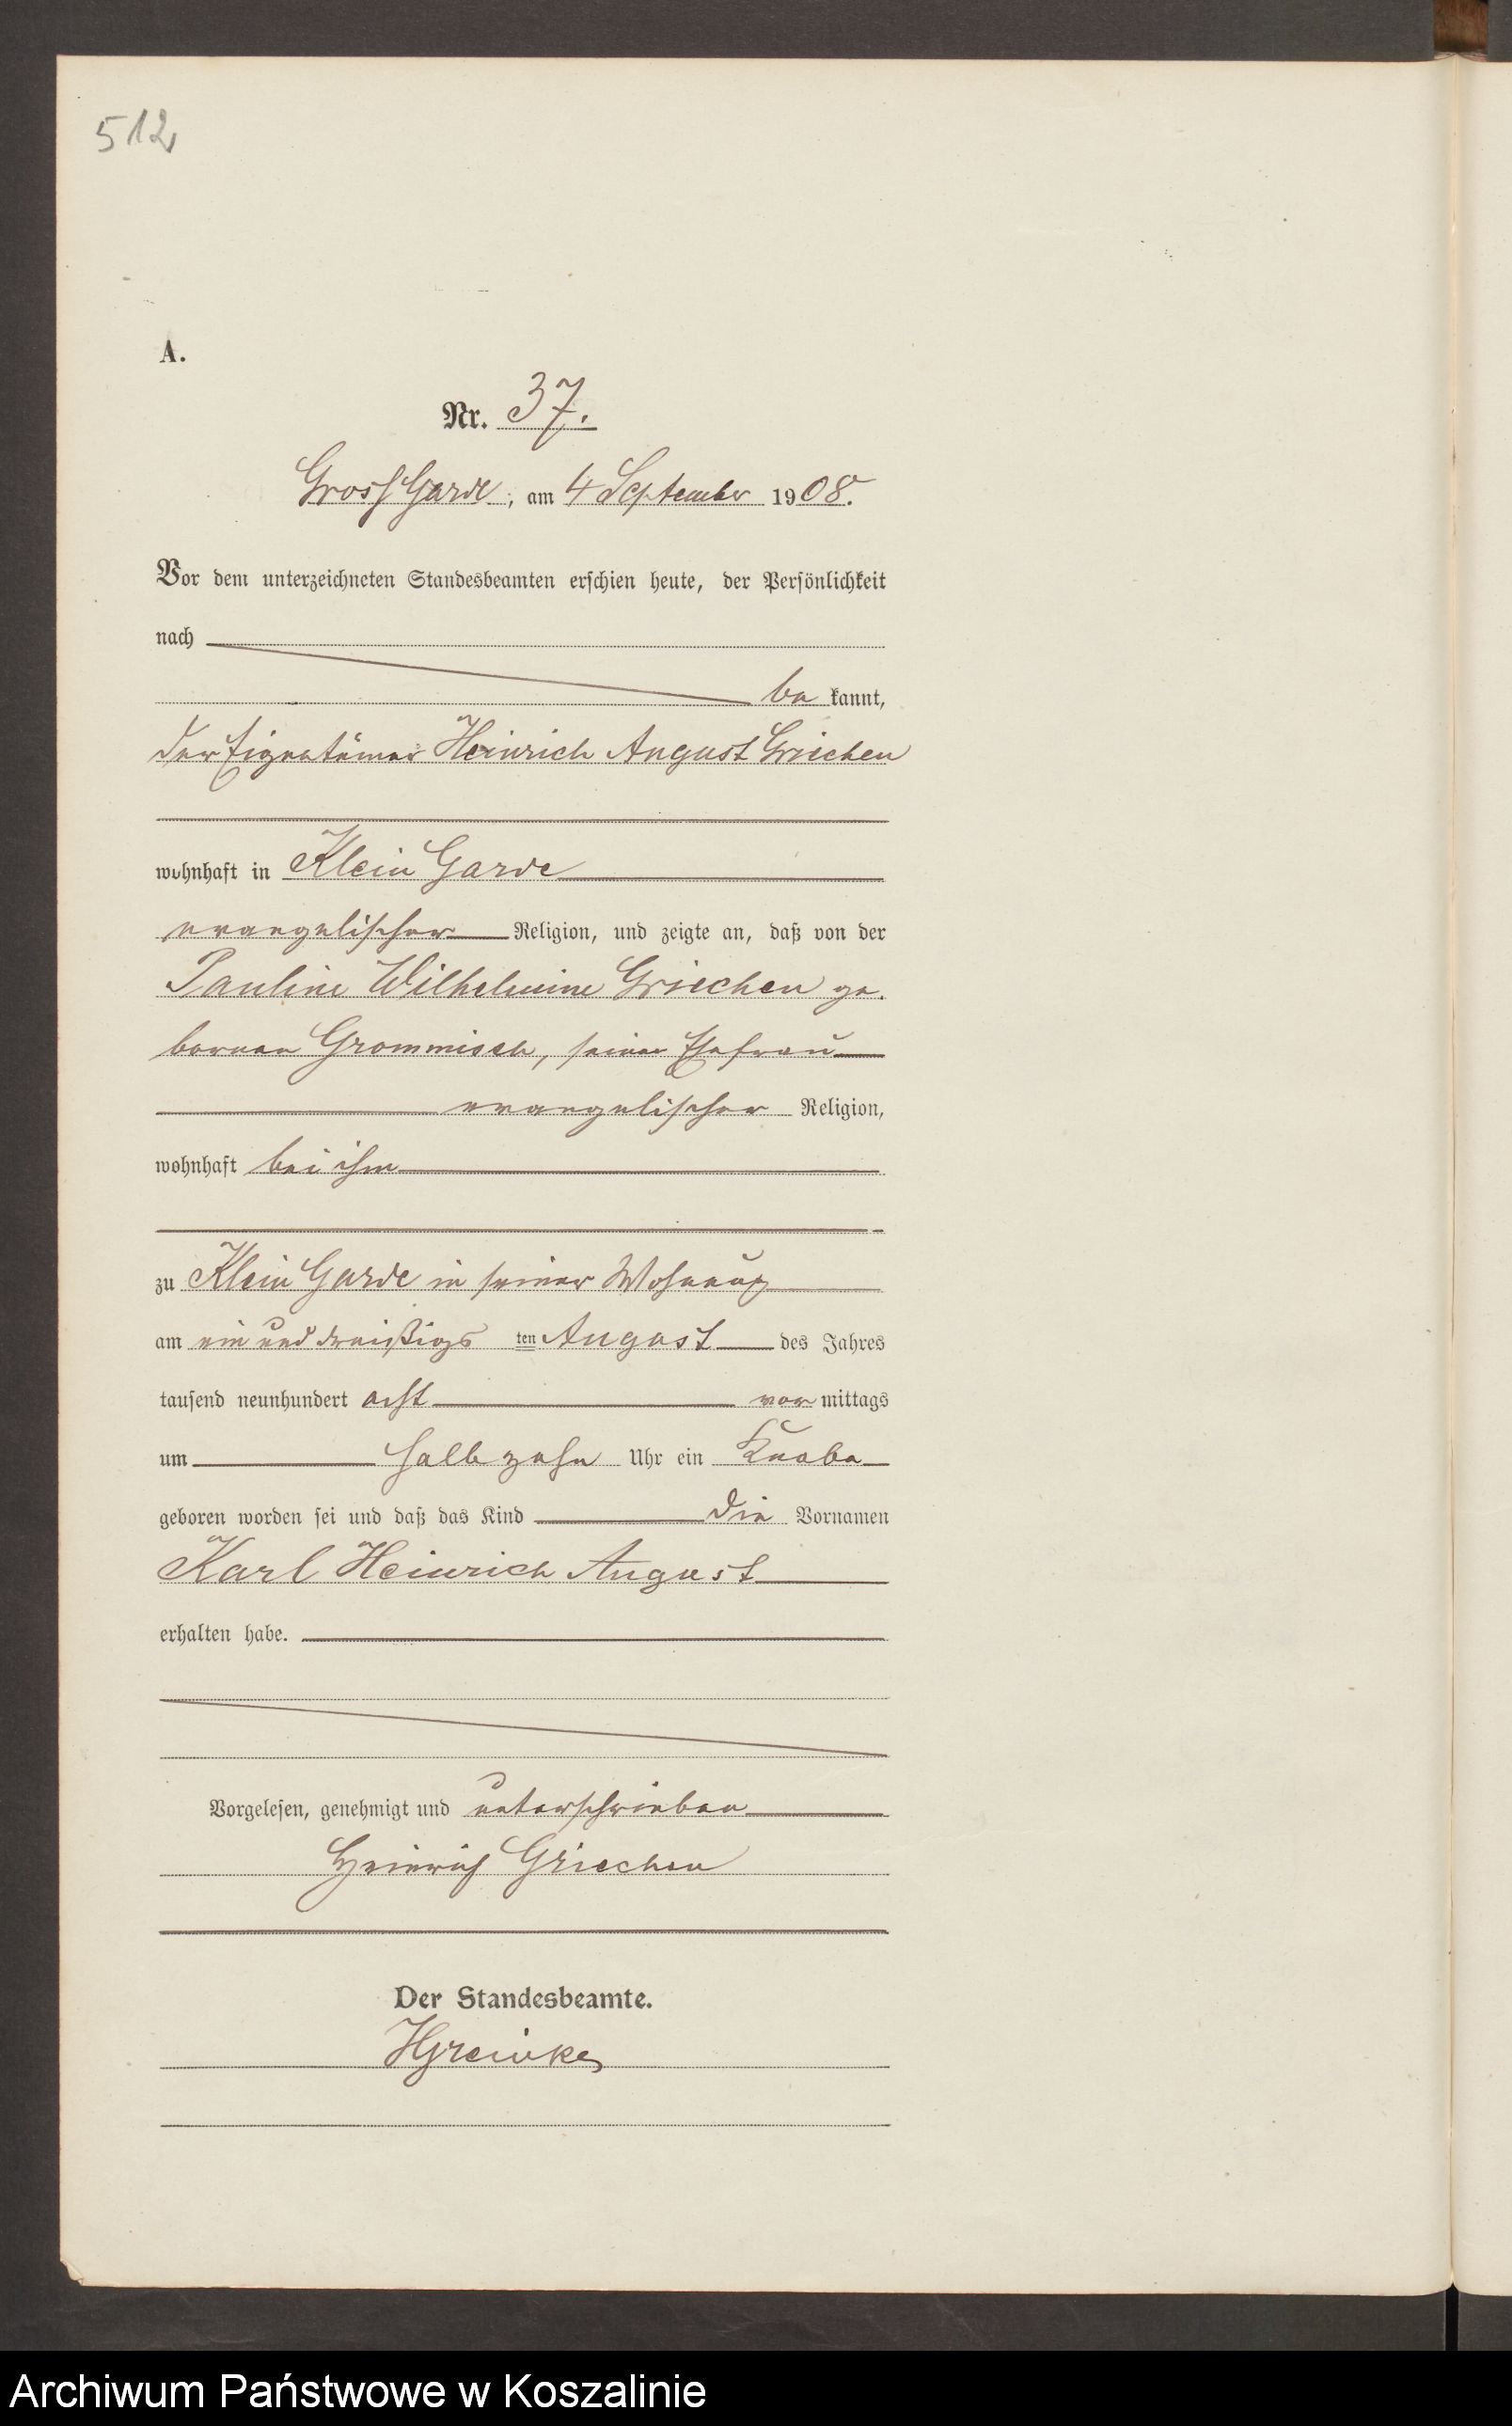 512
A.
Nr. 37.
Gross Garde, am 4 September 1908.
Vor dem unterzeichneten Standesbeamten erschien heute, der Persönlichkeit
nach
be kannt,
der Eigentümer Heinrich August Griechen
wohnhaft in Klein Garde
evangelischer Religion, und zeigte an, daß von der
Pauline Wilhelmine Griechen ge-
bornen Grommisch, seiner Ehefrau
evangelischer Religion,
wohnhaft bei ihm
zu Klein Garde in seiner Wohnung
am ein und dreißigs ten August des Jahres
tausend neunhundert acht vor mittags
um halb zehn Uhr ein Knabe
geboren worden sei und daß das Kind die Vornamen
Karl Heinrich August
erhalten habe.
Vorgelesen, genehmigt und unterschrieben
Heinrich Griechen
Der Standesbeamte.
Archiwum Państwowe w Koszalinie